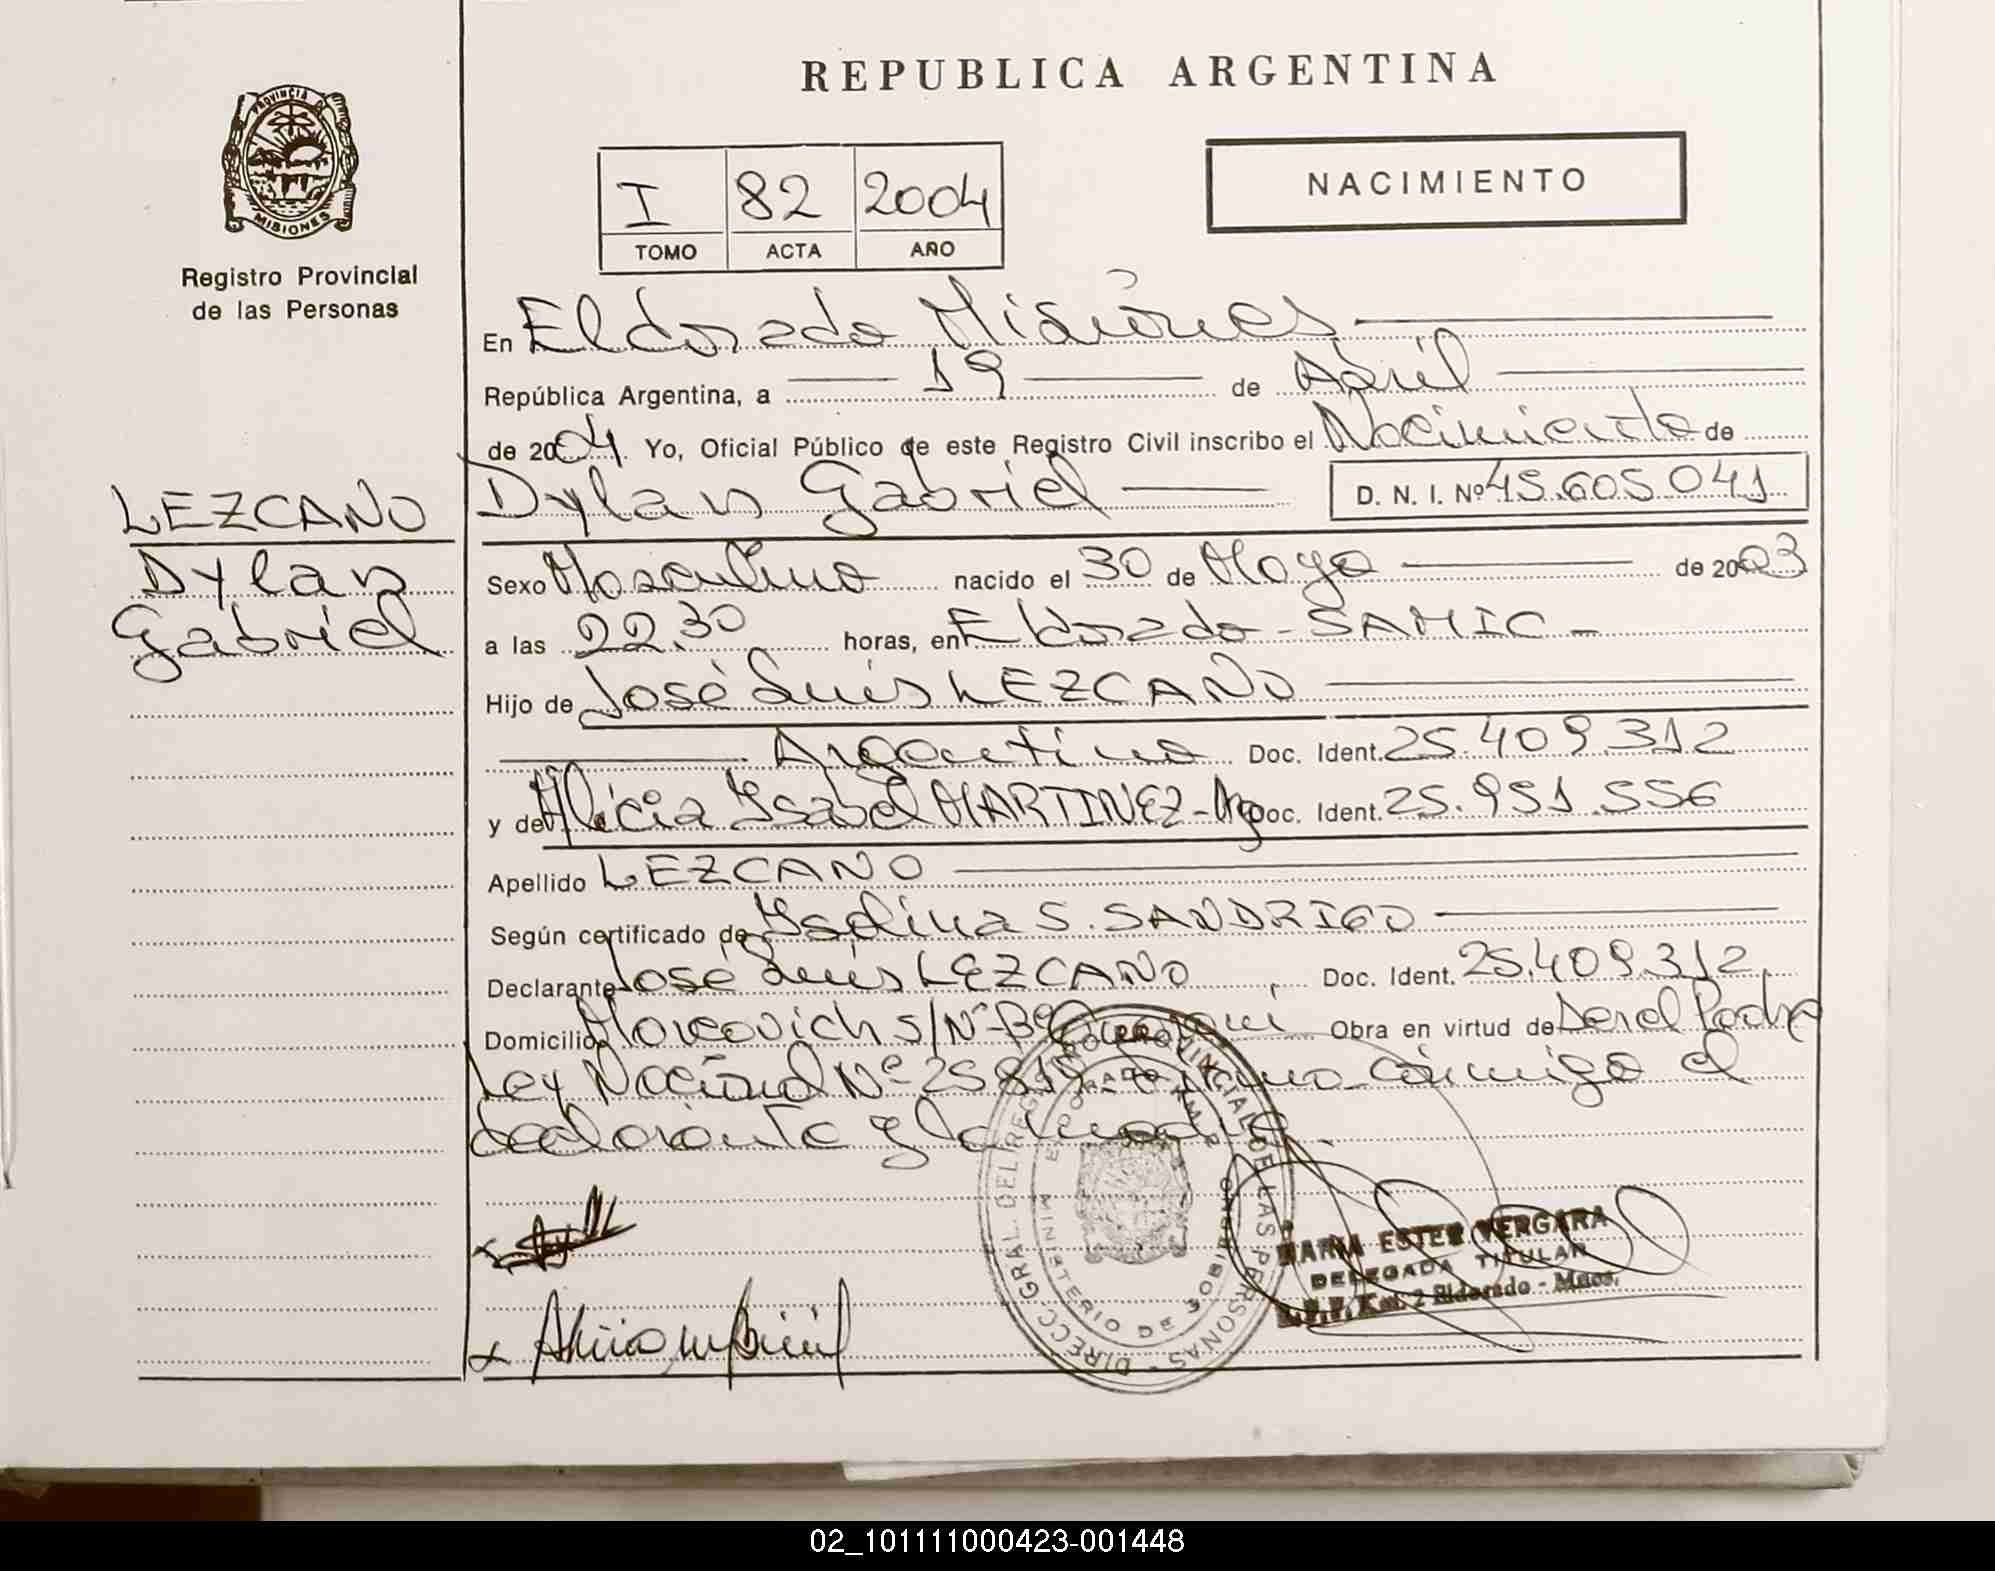 REPUBLICA ARGENTINA
PROVINCIA D MISIONES
Registro Provincial
de las Personas
I 82 2004
TOMO ACTA AÑO
NACIMIENTO
En Eldorado Misiones
República Argentina, a 19 de Abril
de 2004 Yo, Oficial Público de este Registro Civil inscribo el Nacimiento de
LEZCANO
Dylan
Gabriel
Dylan Gabriel D. N. I. Nº 45.605.041
Sexo Masculino nacido el 30 de Mayo de 2003
a las 22.30 horas, en Eldorado - SAMIC -
Hijo de José Luis LEZCANO
Argentino Doc. Ident. 25.409.312
y de Alicia Ysabel MARTINEZ - Arg Doc. Ident. 25.951.556
Apellido LEZCANO
Según certificado de S. SANDRIGO
Declarante José Luis LEZCANO, Doc. Ident. 25.409.312
Domicilio Marcovich s/Nº Bº Obra en virtud de Padre
Ley Nacional Nº 25.819 conmigo el
declarante y la madre.
DIRECC. GRAL. DEL REGISTRO PROVINCIAL DE LAS PERSONAS
MINISTERIO DE GOBIERNO
ELDORADO
MARIA ESTER VERGARA
DELEGADA TITULAR
Km. 2 Eldorado - Mnes.
02_101111000423-001448